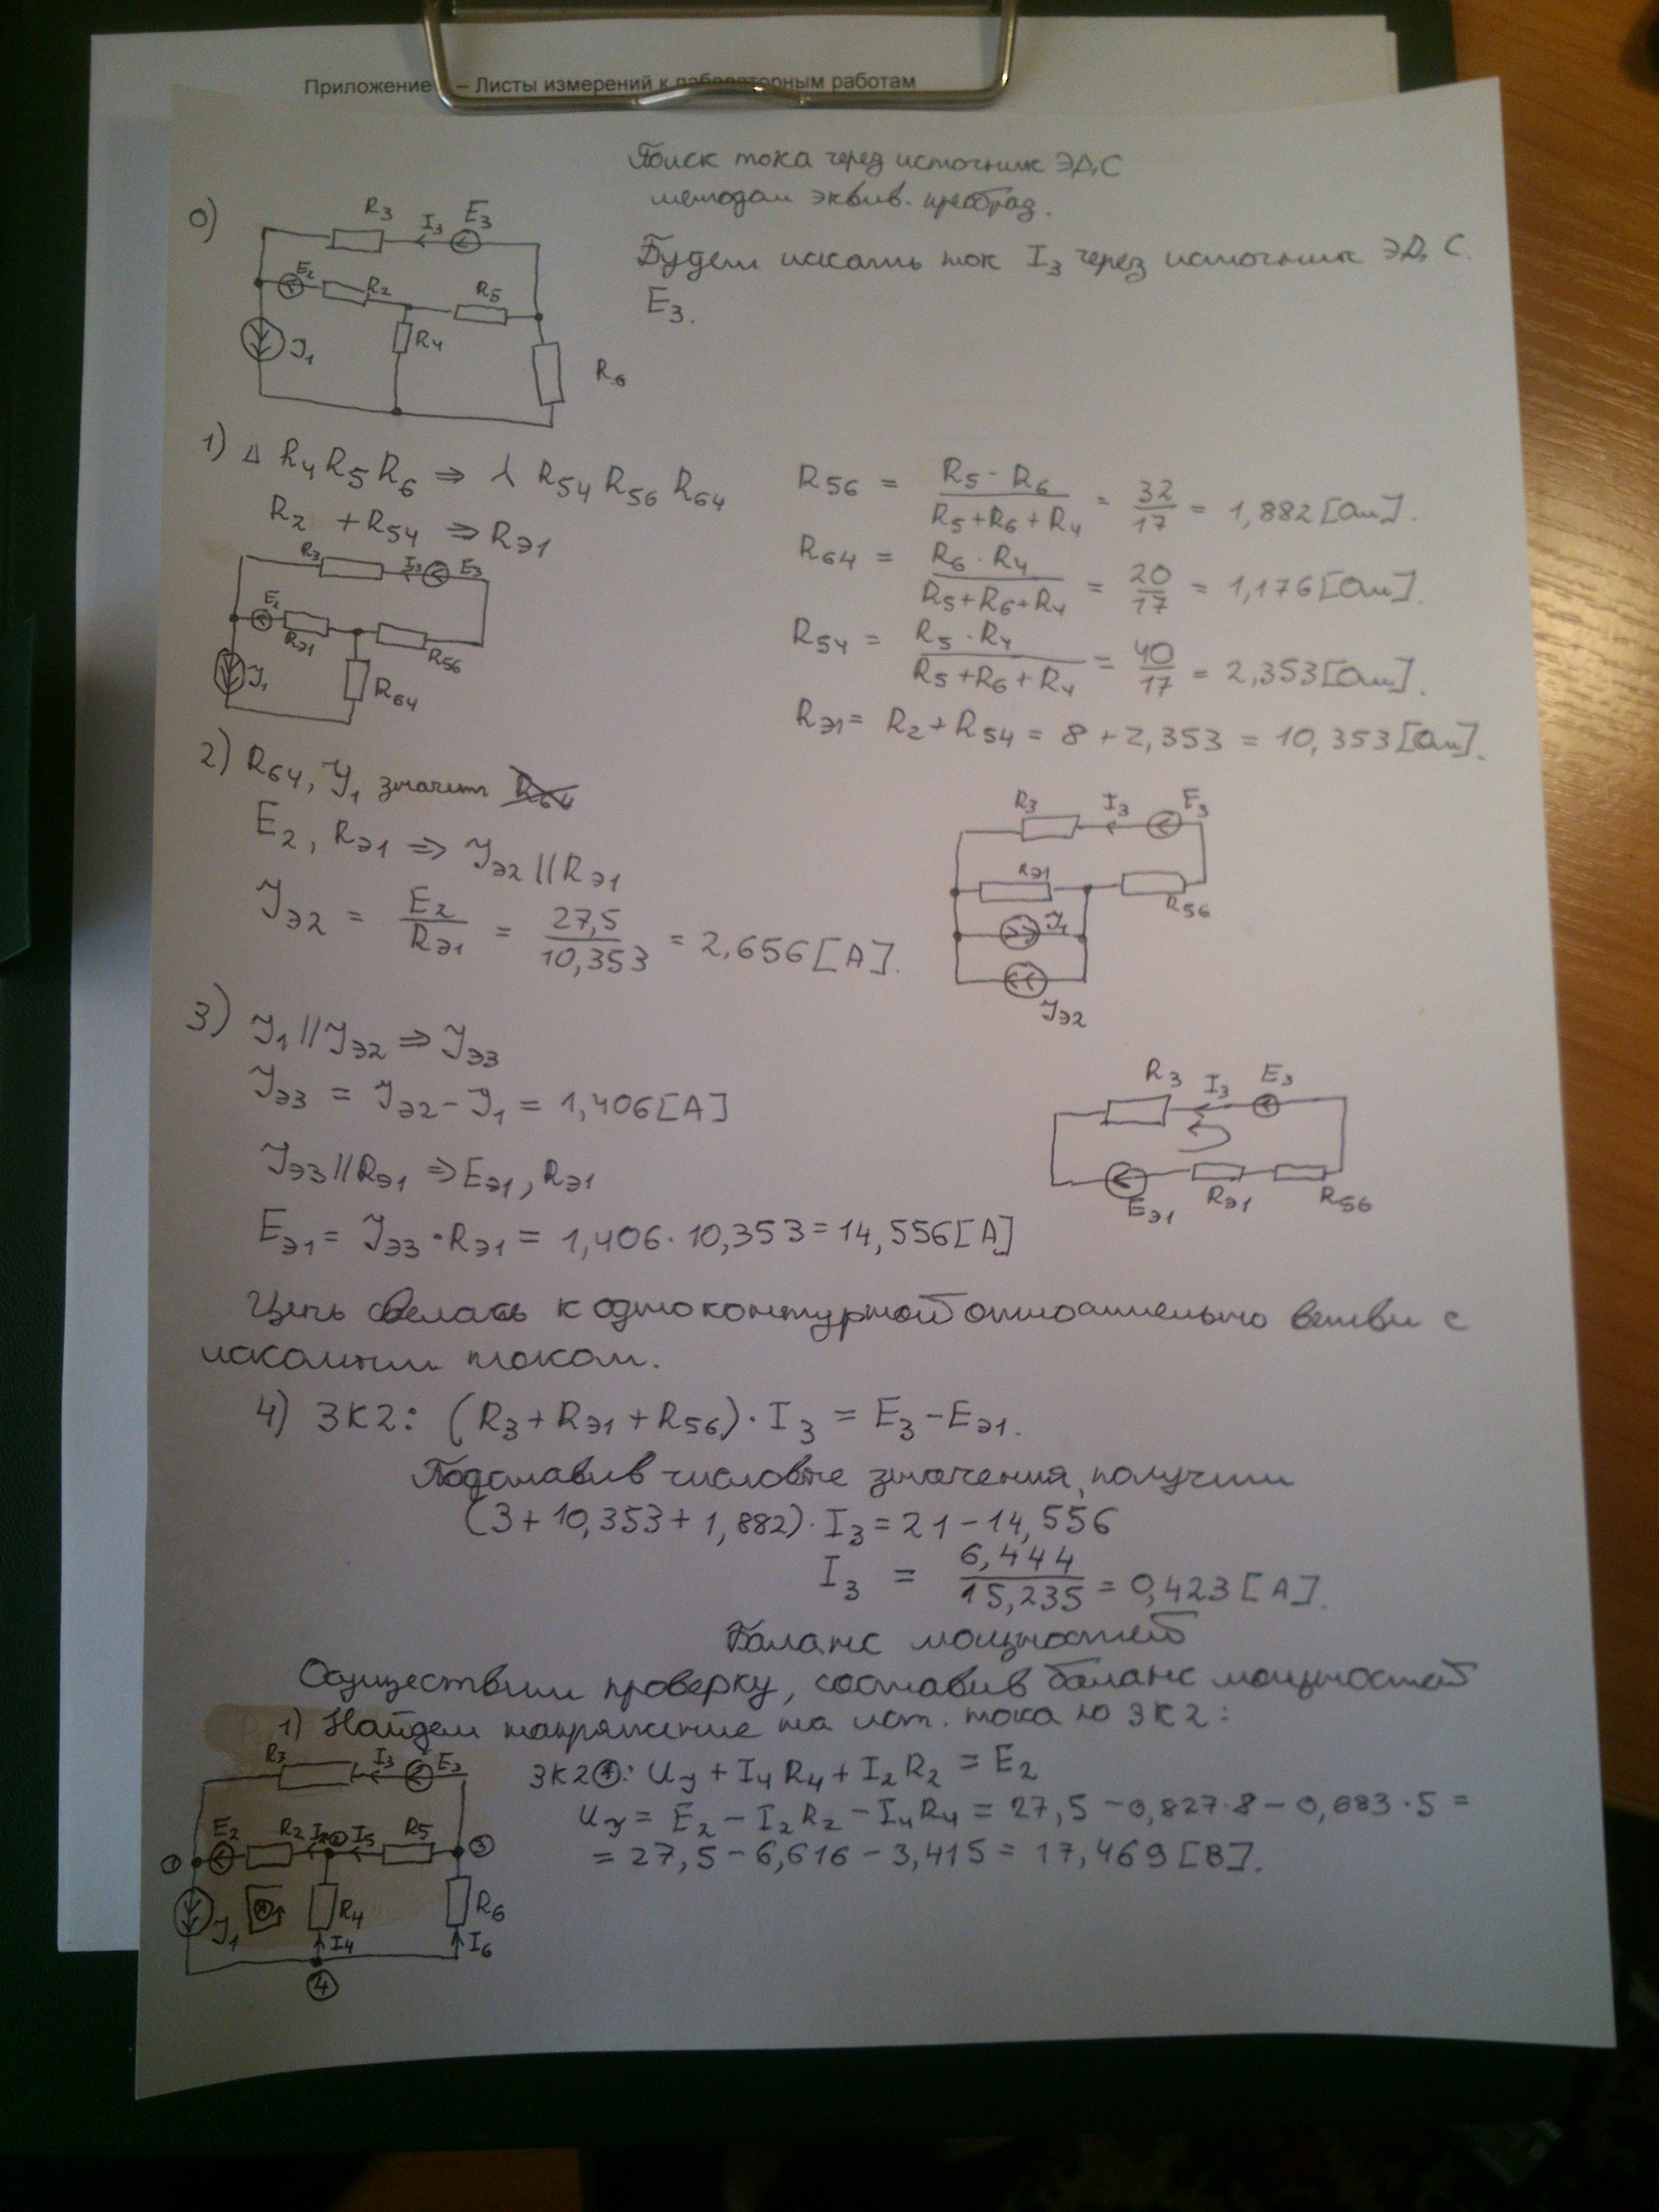 Приложение – Листы измерений к лабораторным работам
Поиск тока через источник ЭДС
методом эквив. преобраз.
0)
R3 I3 E3
E2 R2 R5
J1 R4
R6
Будем искать ток I3 через источник ЭДС
E3.
1) Δ R4 R5 R6 ⇒ λ R54 R56 R64
R2 + R54 ⇒ RЭ1
R3 I3 E3
E2 RЭ1 R56
J1 R64
R56 = R5 · R6 / (R5+R6+R4) = 32/17 = 1,882 [Ом].
R64 = R6 · R4 / (R5+R6+R4) = 20/17 = 1,176 [Ом].
R54 = R5 · R4 / (R5+R6+R4) = 40/17 = 2,353 [Ом].
RЭ1 = R2 + R54 = 8 + 2,353 = 10,353 [Ом].
2) R64, J1 значит R64
E2, RЭ1 ⇒ JЭ2 // RЭ1
JЭ2 = E2 / RЭ1 = 27,5 / 10,353 = 2,656 [А].
R3 I3 E3
RЭ1 R56
J1
JЭ2
3) J1 // JЭ2 ⇒ JЭ3
JЭ3 = JЭ2 – J1 = 1,406 [А]
JЭ3 // RЭ1 ⇒ EЭ1, RЭ1
EЭ1 = JЭ3 · RЭ1 = 1,406 · 10,353 = 14,556 [А]
R3 I3 E3
EЭ1 RЭ1 R56
Цепь свелась к одноконтурной относительно ветви с
искомым током.
4) ЗК2: (R3 + RЭ1 + R56) · I3 = E3 – EЭ1.
Подставив числовые значения, получим
(3 + 10,353 + 1,882) · I3 = 21 – 14,556
I3 = 6,444 / 15,235 = 0,423 [А].
Баланс мощностей
Осуществим проверку, составив баланс мощностей
1) Найдем напряжение на ист. тока по ЗК2:
R3 I3 E3
1 E2 R2 I2 2 I5 R5 3
J1 R4 R6
I4 I6
4
ЗК2 : UJ + I4 R4 + I2 R2 = E2
UJ = E2 – I2 R2 – I4 R4 = 27,5 – 0,827 · 8 – 0,683 · 5 =
= 27,5 – 6,616 – 3,415 = 17,469 [В].